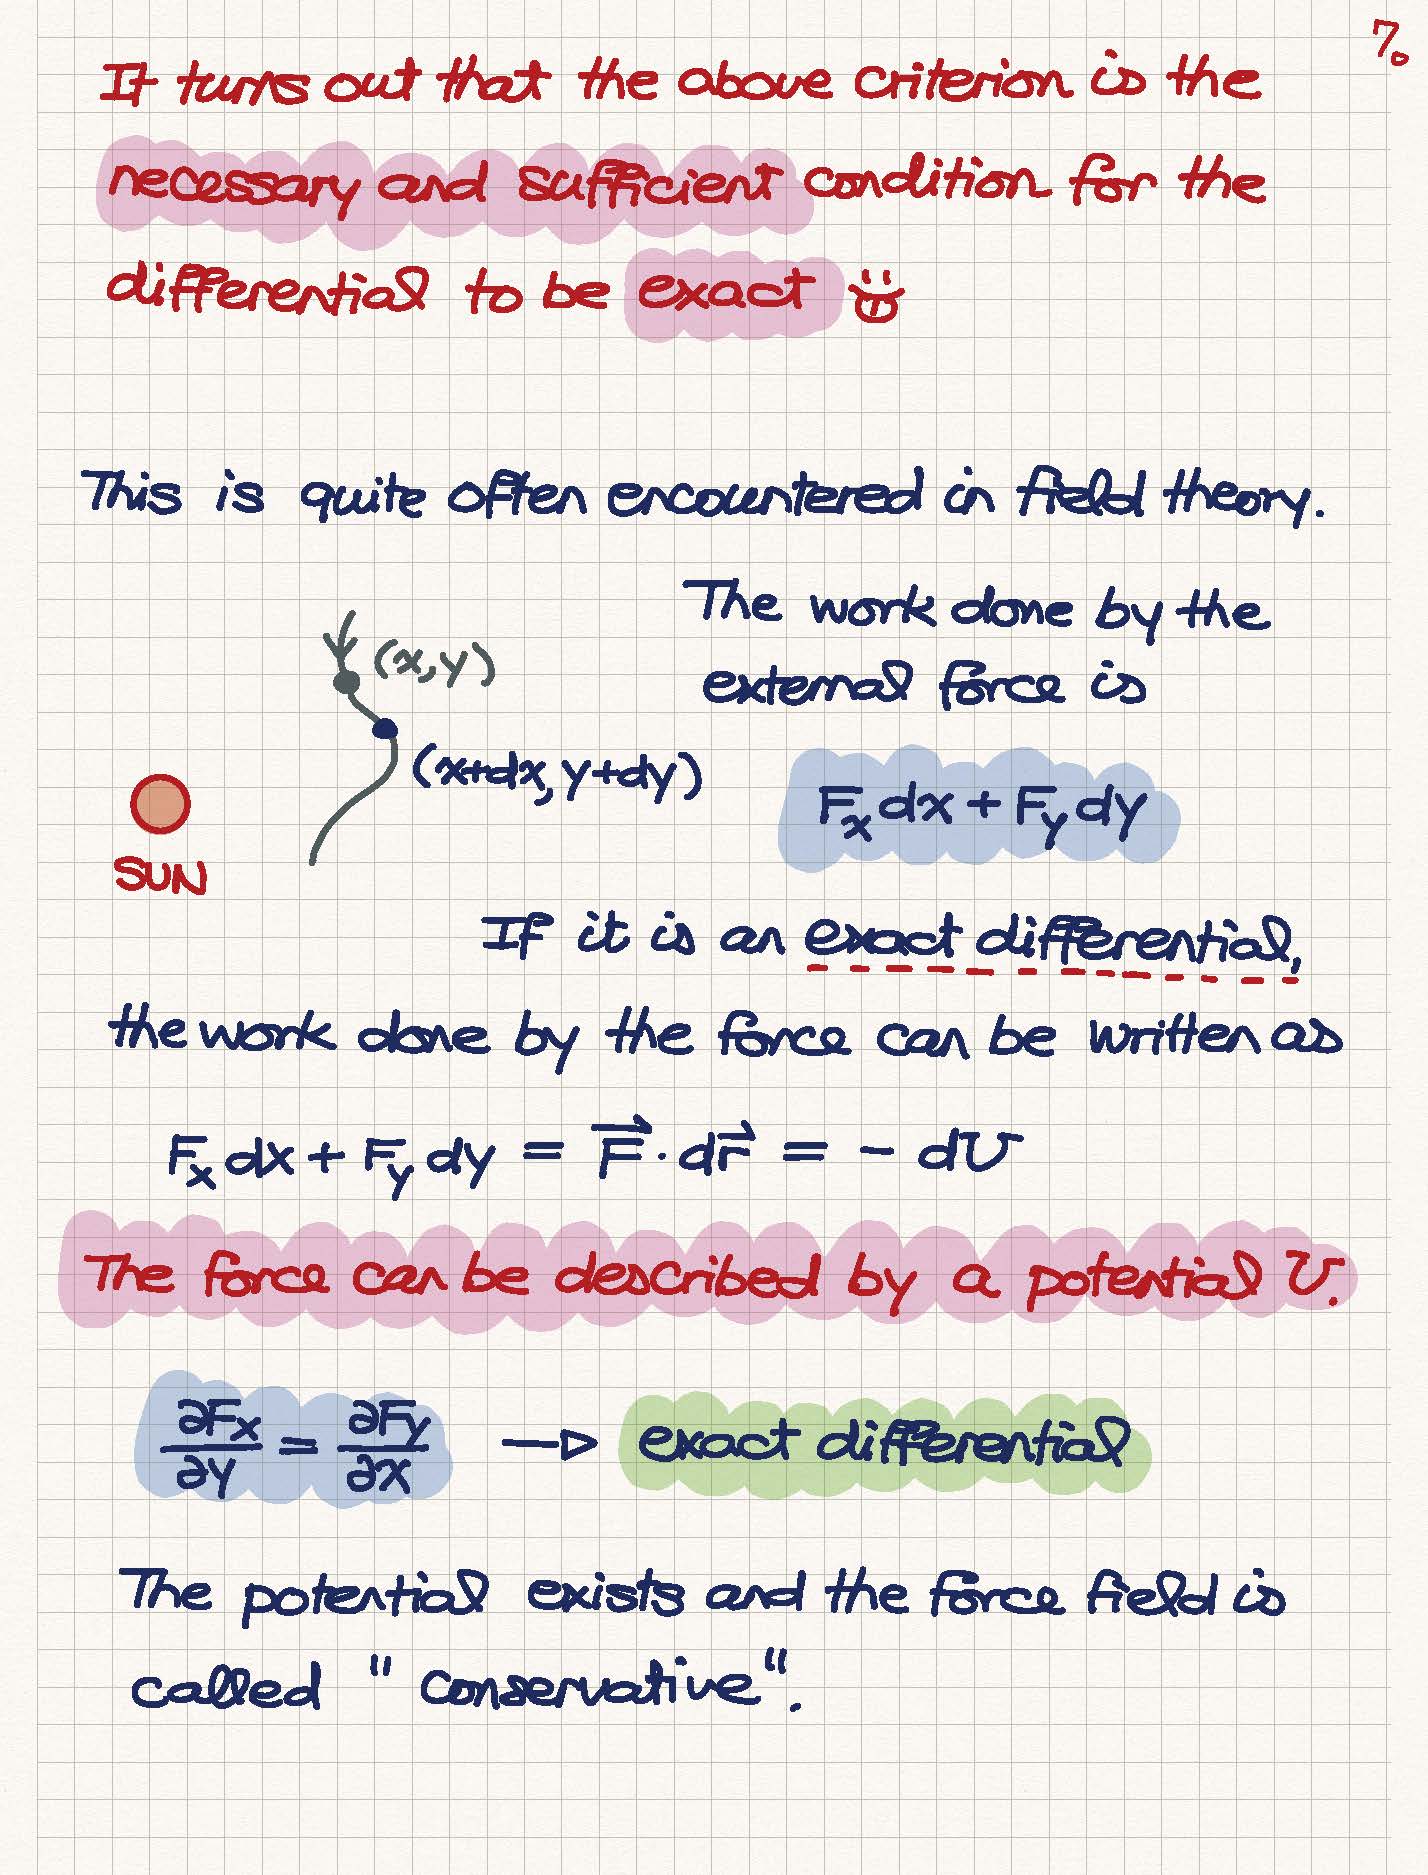 7.
It turns out that the above criterion is the
necessary and sufficient condition for the
differential to be exact
This is quite often encountered in field theory.
The work done by the
(x,y)
external force is
(x+dx, y+dy)
F_x dx + F_y dy
SUN
If it is an exact differential,
the work done by the force can be written as
F_x dx + F_y dy = F⃗ · dr⃗ = - dU
The force can be described by a potential U.
∂F_x/∂y = ∂F_y/∂x → exact differential
The potential exists and the force field is
called "conservative".